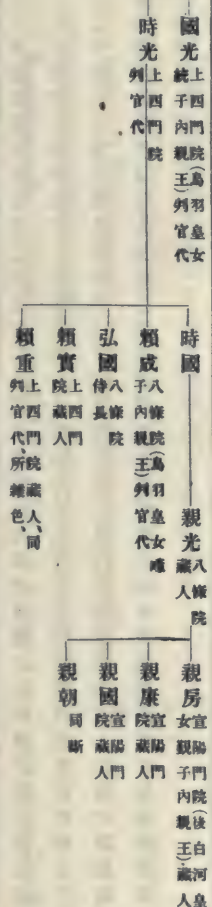 國光
上四門院(鳥羽皇女
統子內親王)判官代
時光
上四門院
判官代
時國
賴成
八條院(鳥羽皇女暲
子內親王)判官代
弘國
八條院
侍長
賴實
上四門
院藏人
賴重
上四門院藏人、同
判官代、所雜色、
親光
八條院
藏人
親房
宣陽門院(後白河皇
女覲子內親王)、藏人
親康
宣陽門
院藏人
親國
宣陽門
院藏人
親朝
同斷